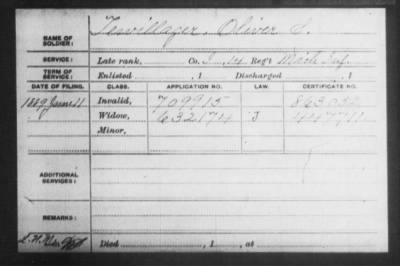 NAME OF SOLDIER: Tewillager, Oliver S.
SERVICE: Late rank, Co. I, 14 Reg't Mich Inf.
TERM OF SERVICE: Enlisted , 1 Discharged , 1
DATE OF FILING. CLASS. APPLICATION NO. LAW. CERTIFICATE NO.
1889 June 11 Invalid, 709915 863052
Widow, 632174 J 447711
Minor,
ADDITIONAL SERVICES:
REMARKS:
Died , 1 , at